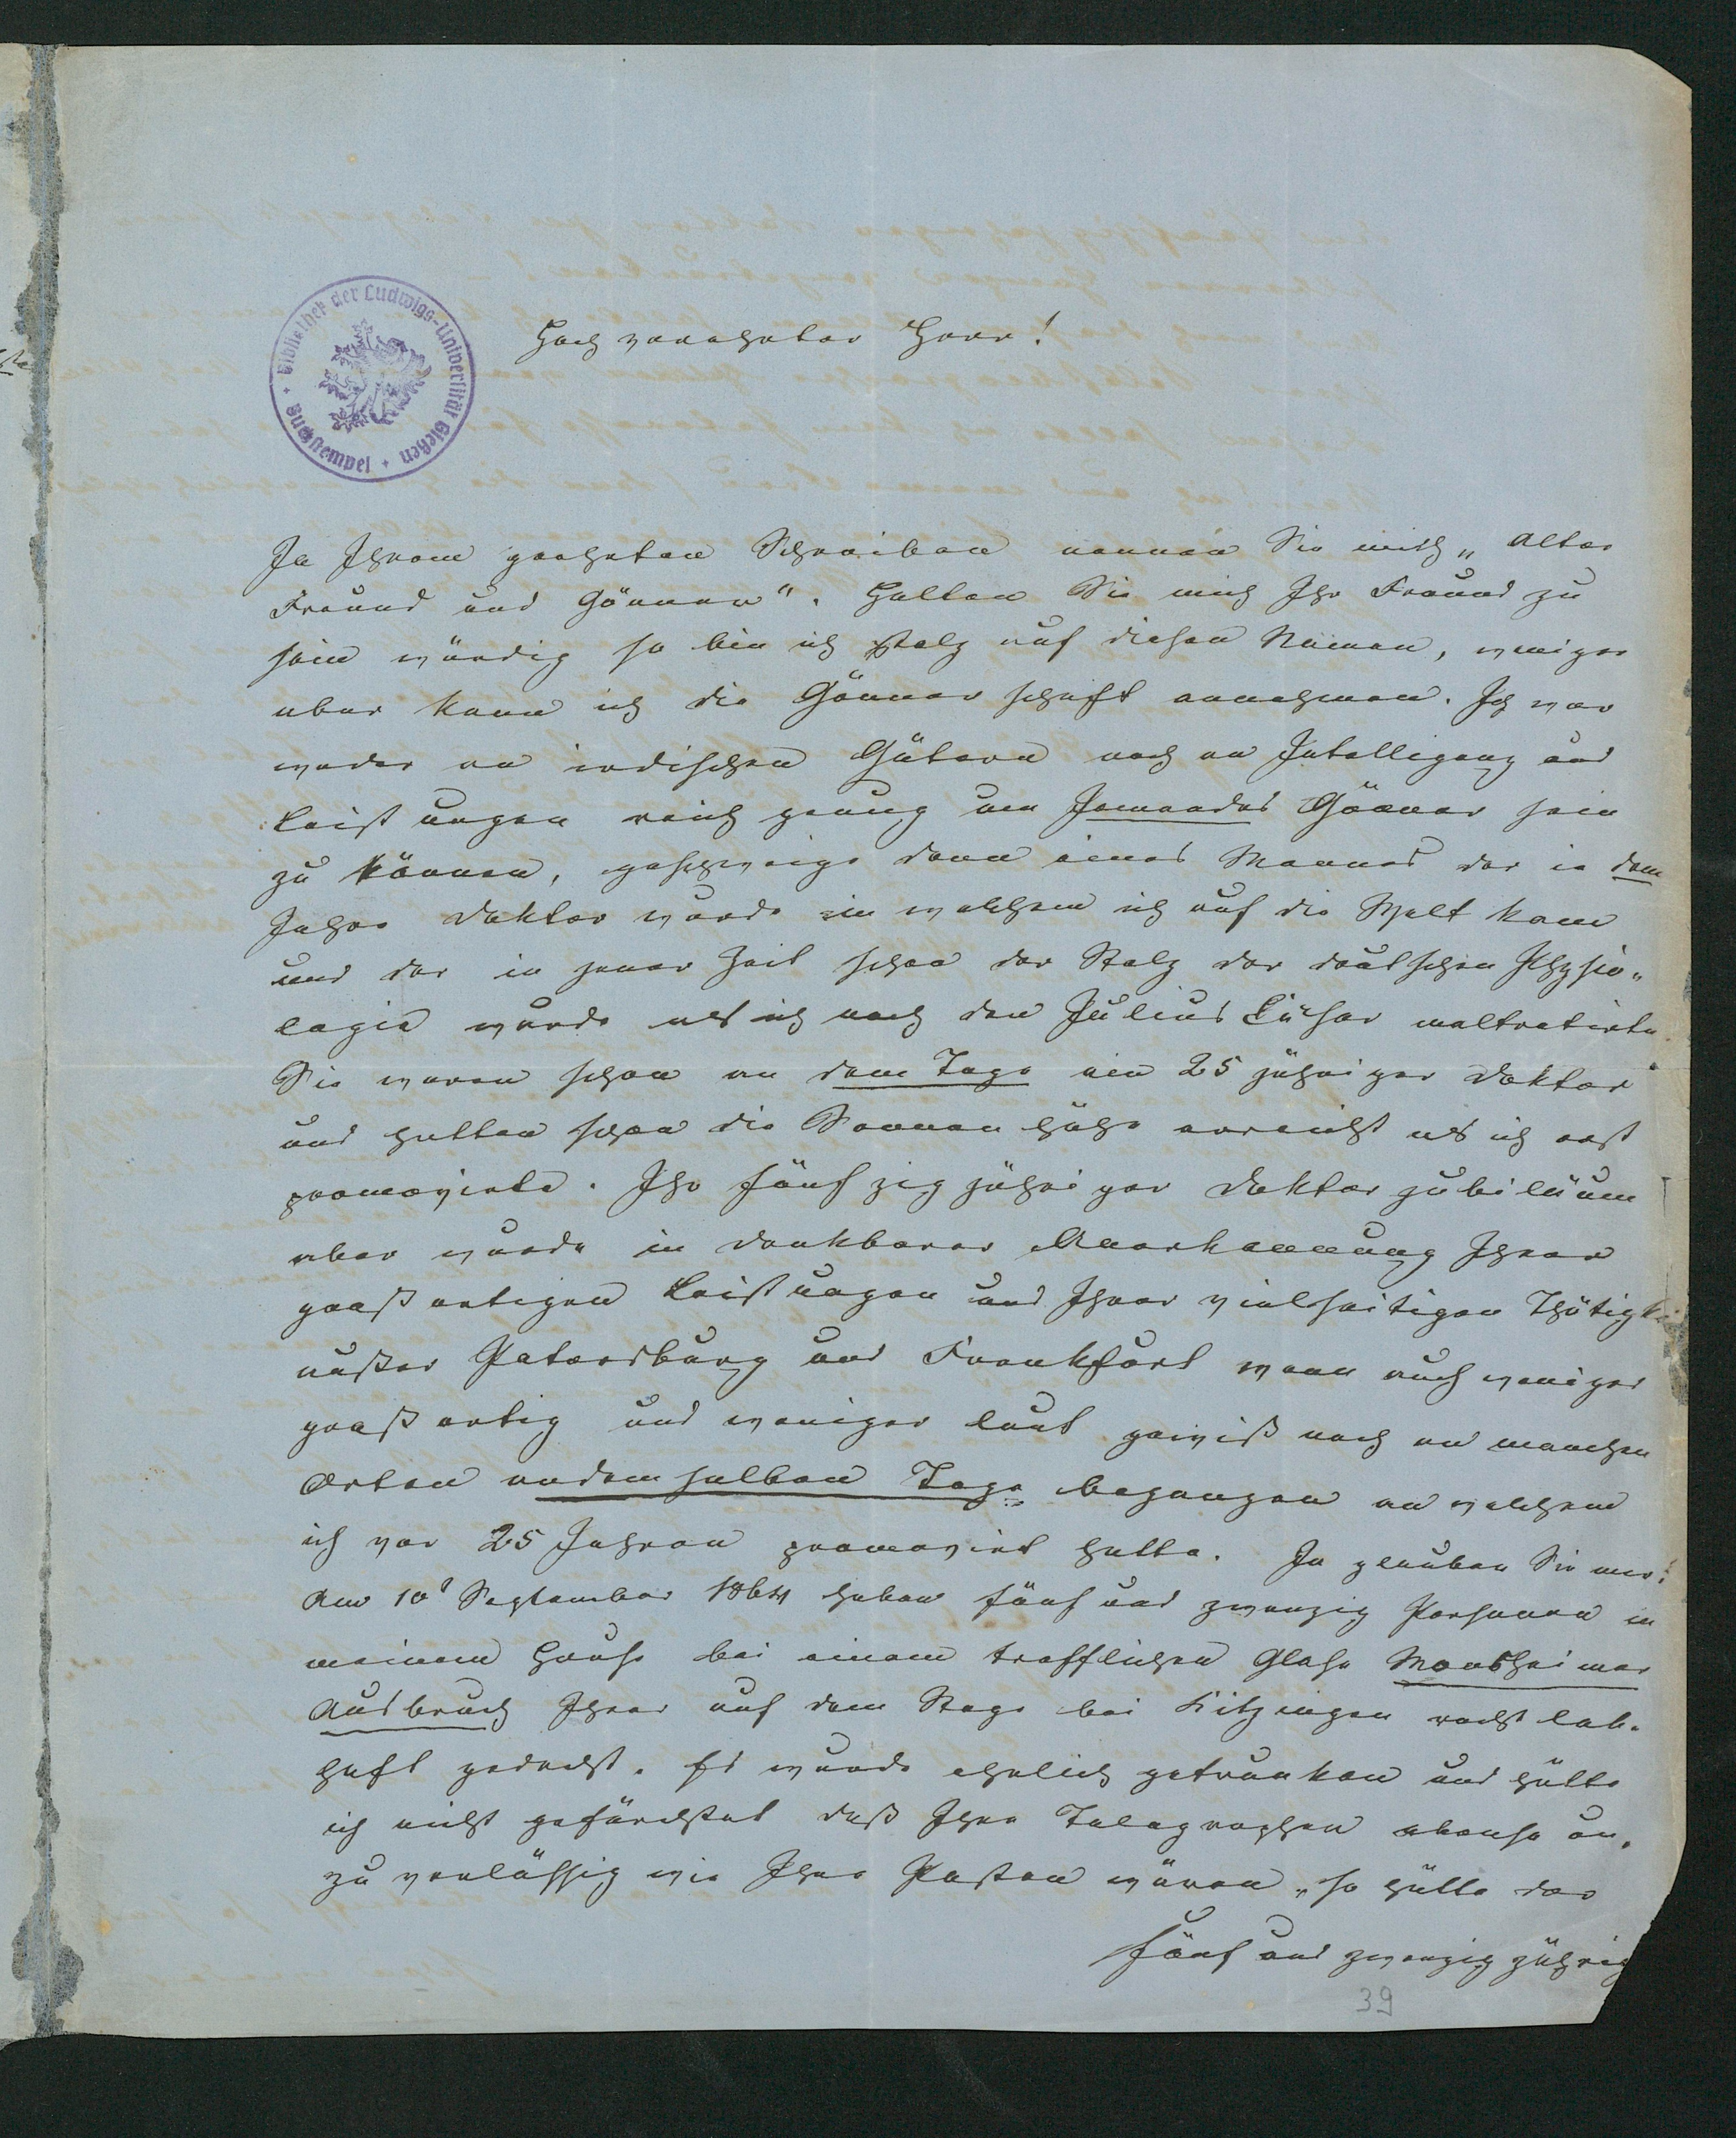 Bibliothek der Ludwigs-Universität Gießen
Buchstempel
Hoch verehrter Herr!
In Ihrem geehrten Schreiben nennen Sie mich „alter
Freund und Gönner“. Halten Sie mich Ihr Freund zu
sein würdig so bin ich stolz auf diesen Namen, weniger
aber kann ich die Gönnerschaft annehmen. Ich war
weder an irdischen Gütern noch an Intelligenz und
Leistungen reich genug um Jemandes Gönner sein
zu können, geschweige denn eines Mannes der in dem
Jahre Doktor wurde in welchem ich auf die Welt kam
und der in jener Zeit schon der Stolz der deutschen Physio„
logie wurde als ich noch den Julius Cäsar maltretirte
Sie waren schon an dem Tage ein 25 jähriger Doktor
und hatten schon die Sonnenhöhe erreicht als ich erst
promovirte. Ihr fünfzigjähriger Doktorjubiläum
aber wurde in dankbarer Anerkennung Ihrer
großartigen Leistungen und Ihrer vielseitigen Thätigke
außer Petersburg und Frankfurt wenn auch weniger
großartig und weniger laut gewiß noch an manchen
Orten an demselben Tage begangen an welchem
ich vor 25 Jahren promovirt hatte. Ja glauben Sie mir:
Am 10t September 1864 haben fünf und zwanzig Personen in
meinem Hause bei einem trefflichen Glase Monsheimer
Ausbruch Ihrer auf dem Stege bei Kitzingen recht leb„
haft gedacht. Es wurde ehrlich getrunken und hätte
ich nicht gefürchtet daß Ihre Telegraphen ebenso un„
zuverlässig wie Ihre Posten wären, so hätte das
fünf und zwanzig jährig
39